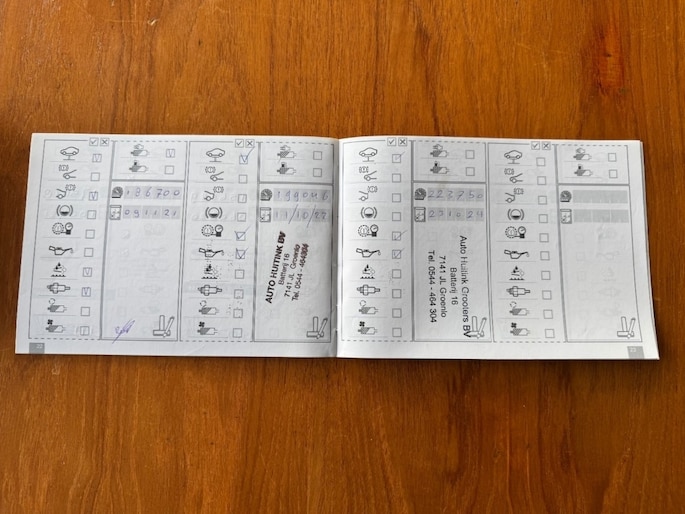 186700
091121
189046
11/10/22
AUTO HUITINK BV
Batterij 16
7141 JL Groenlo
Tel. 0544 - 464304
223750
201024
Auto Huitink Crooters BV
Batterij 16
7141 JL Groenlo
Tel. 0544 - 464 304